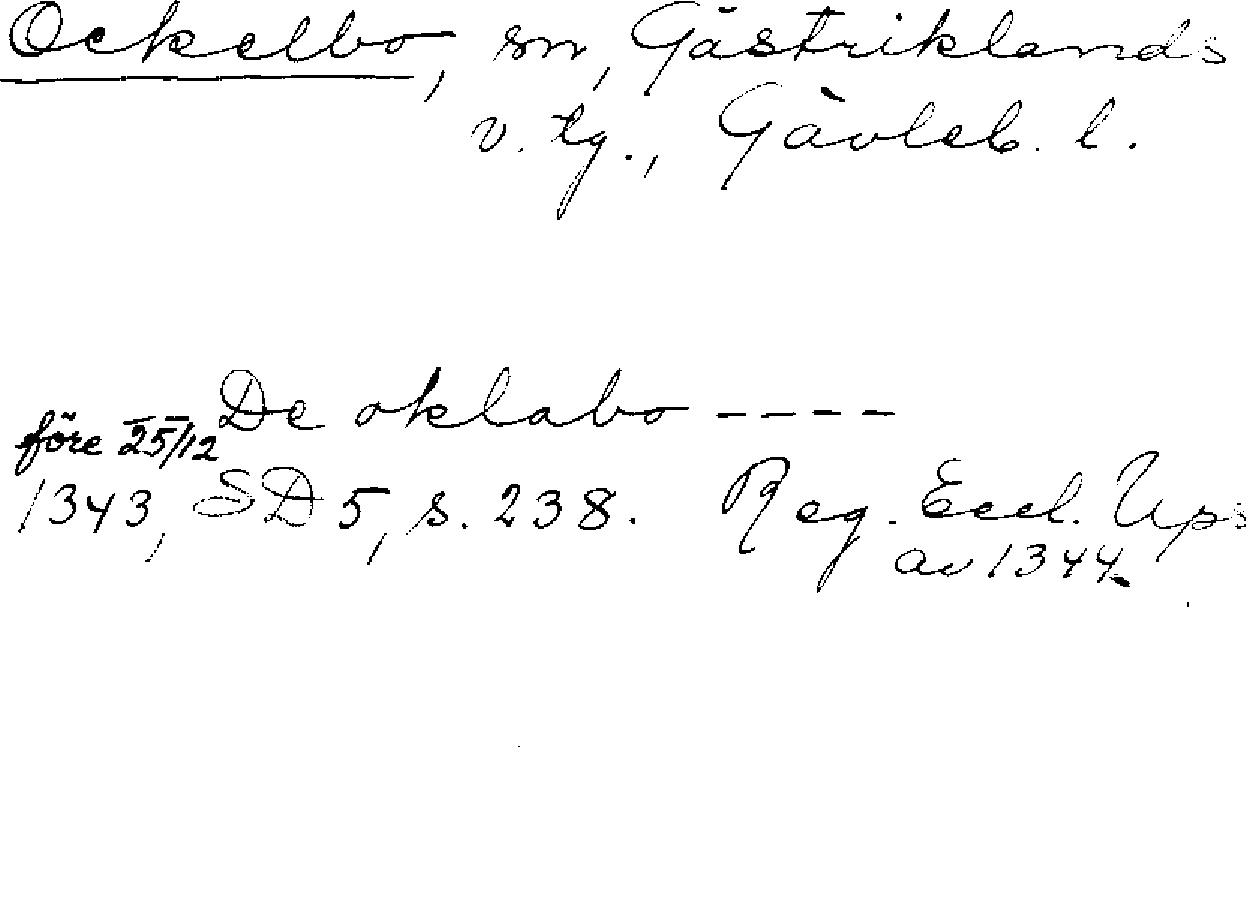 Ockelbo, sn, Gästriklands
v. tg., Gävleb. l.
De oklabo ----
före 25/12
1343, SD 5, s. 238. Reg. Eccl. Ups
av 1344.